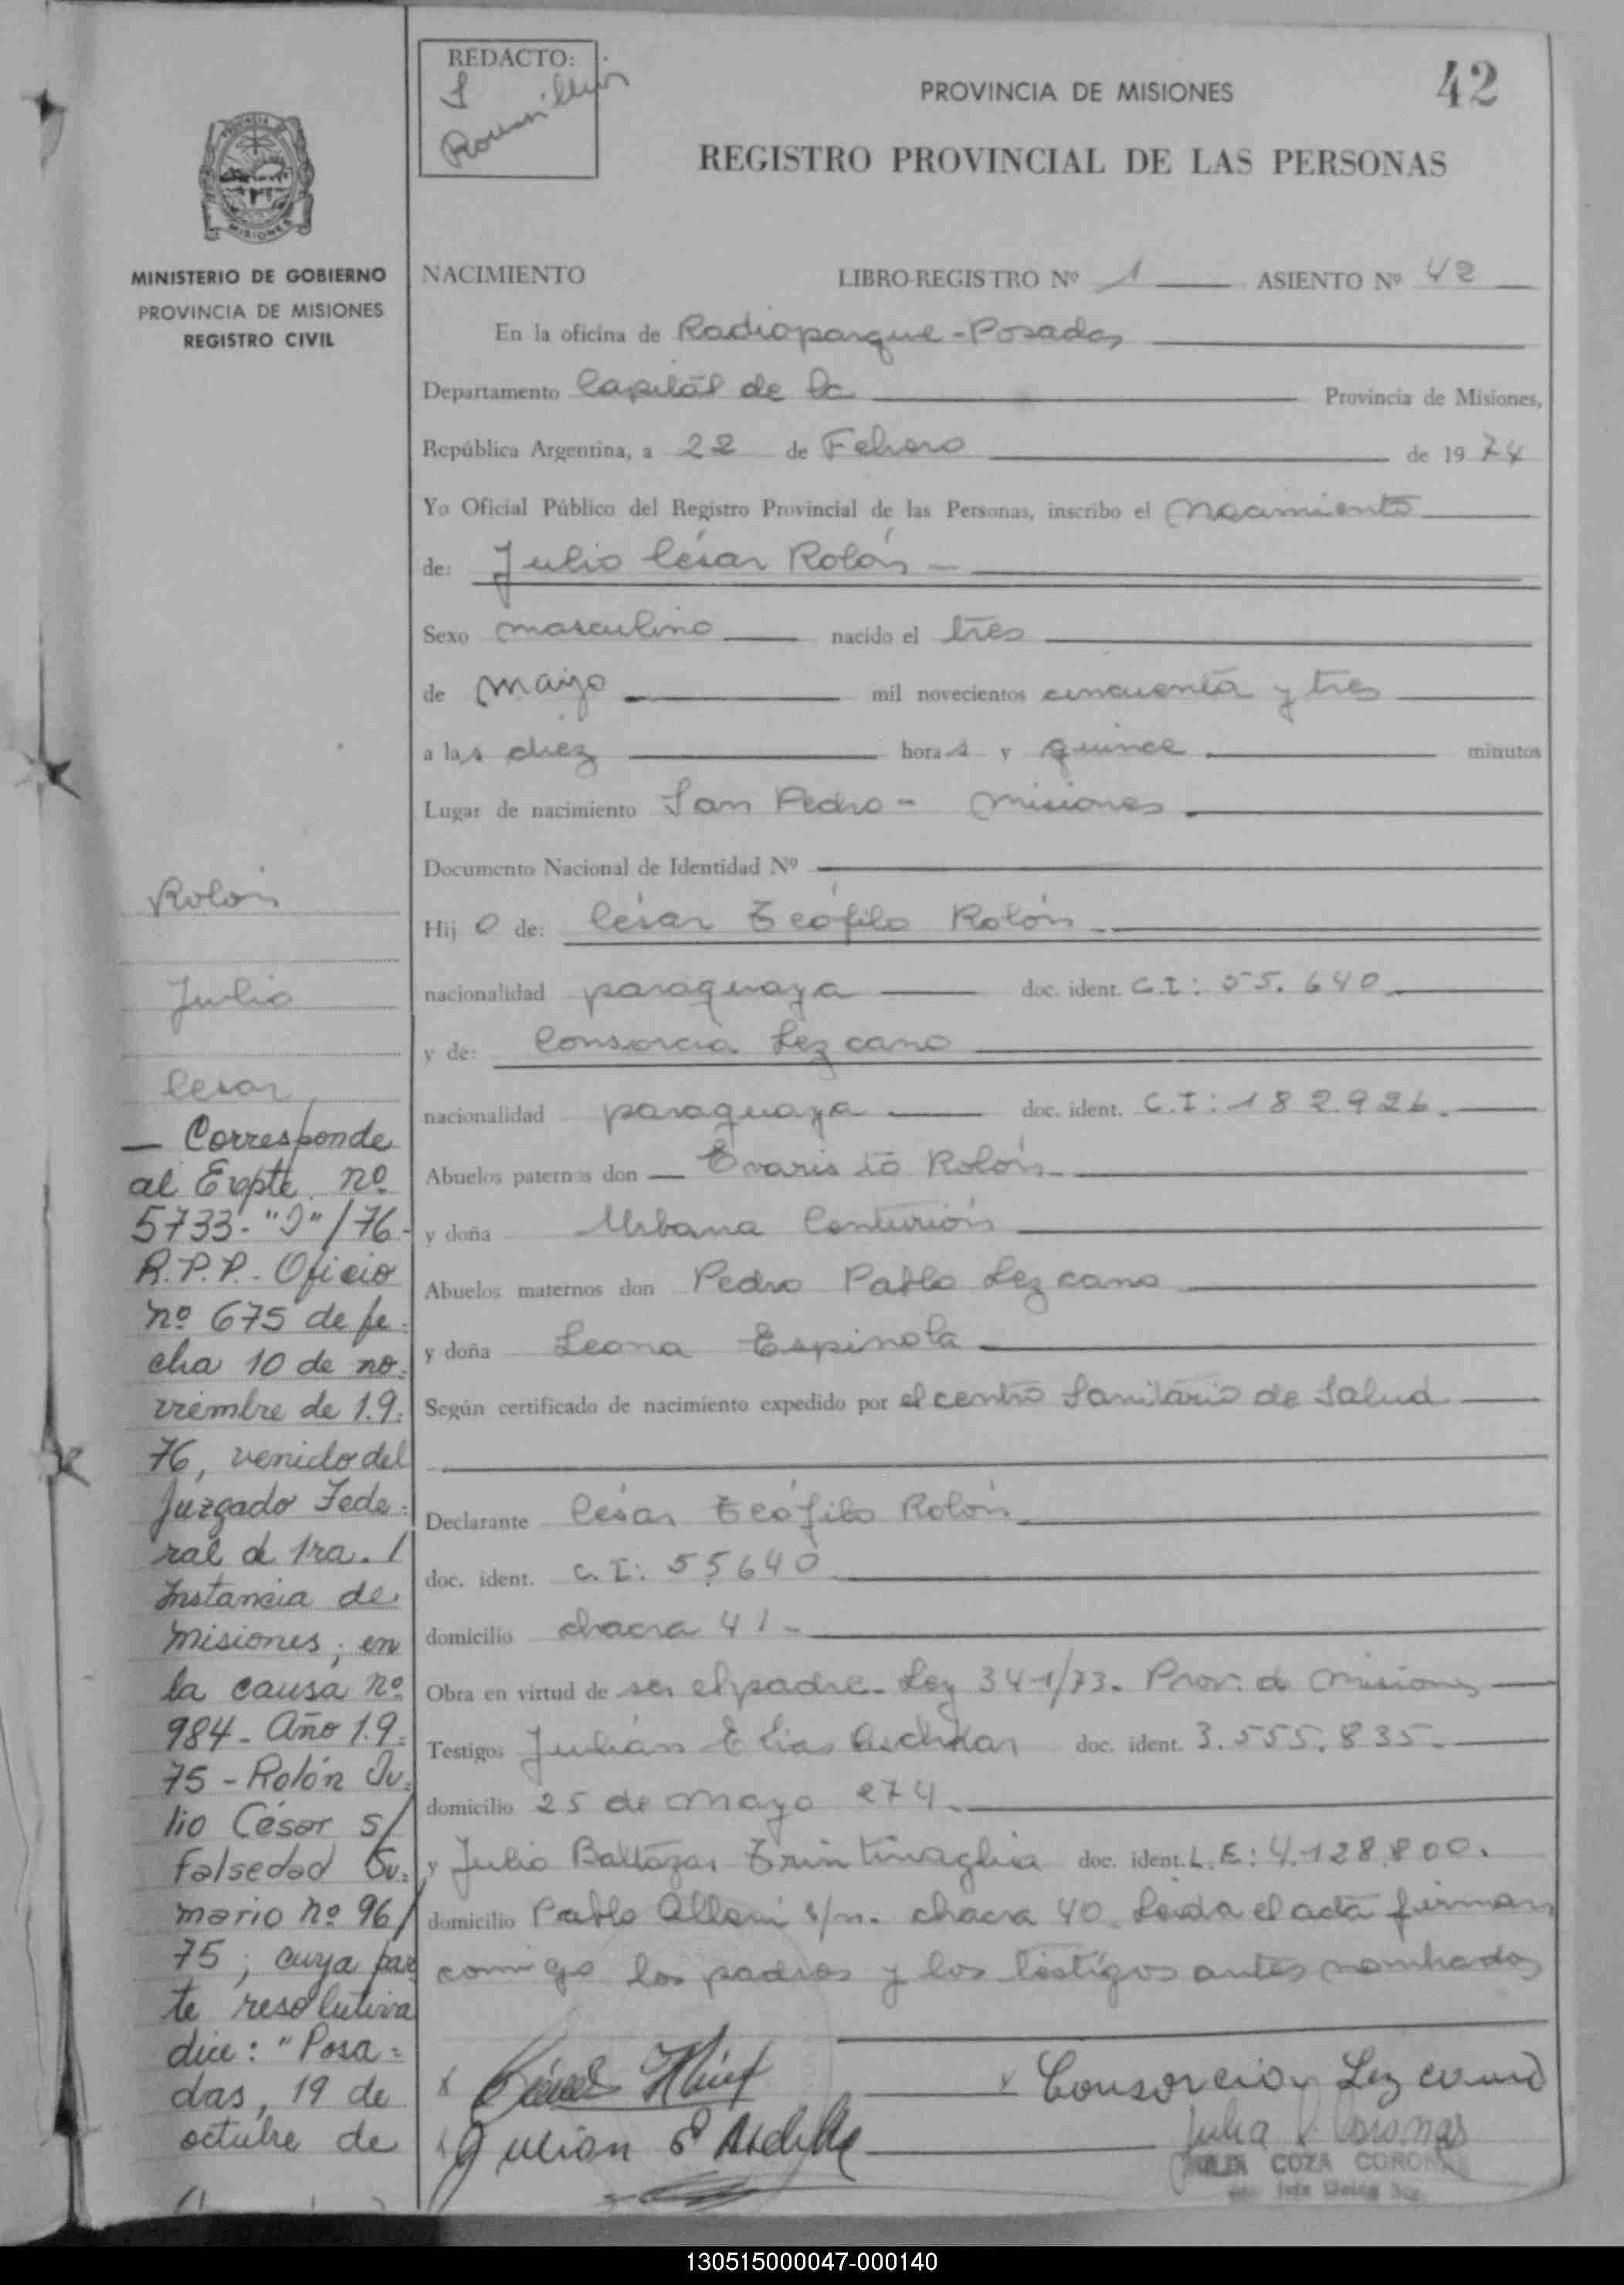 REDACTO:
PROVINCIA DE MISIONES
42
REGISTRO PROVINCIAL DE LAS PERSONAS
MINISTERIO DE GOBIERNO
PROVINCIA DE MISIONES
REGISTRO CIVIL
NACIMIENTO LIBRO-REGISTRO Nº 1 ASIENTO Nº 42
En la oficina de Radioparque - Posadas
Departamento Capital de la Provincia de Misiones,
República Argentina, a 22 de Febrero de 1974
Yo Oficial Público del Registro Provincial de las Personas, inscribo el nacimiento
de: Julio César Rolón -
Sexo masculino nacido el tres
de mayo mil novecientos cincuenta y tres
a las diez horas y quince minutos
Lugar de nacimiento San Pedro - Misiones
Documento Nacional de Identidad Nº
Hijo de: César Teófilo Rolón
nacionalidad paraguaya doc. ident. C.I: 55.640
y de: Consorcia Lezcano
nacionalidad paraguaya doc. ident. C.I: 182.926.
Abuelos paternos don Evaristo Rolón
y doña Urbana Centurión
Abuelos maternos don Pedro Pablo Lezcano
y doña Leona Espinola
Según certificado de nacimiento expedido por el centro Sanitario de Salud
Declarante César Teófilo Rolón
doc. ident. C.I: 55640
domicilio chacra 41 -
Obra en virtud de ser el padre. Ley 341/73. Prov. de Misiones
Testigos Julián Elias doc. ident. 3.555.835.
domicilio 25 de Mayo 274
y Julio Baltazar doc. ident. L.E: 4.128.800.
domicilio Pablo s/n. chacra 40. Leida el acta firman
comigo los padres y los testigos antes nombrados
Consorcion Lezcano
Julian E
Julia Coronas
COZA
Rolón
Julio
Cesar
— Corresponde
al Expte nº
5733-"J"/76-
R.P.P.- Oficio
nº 675 de fe=
cha 10 de no=
viembre de 1.9=
76, venido del
Juzgado Fede=
ral de 1ra. /
Instancia de
Misiones; en
la causa nº
984- Año 1.9=
75 - Rolón Ju=
lio César s/
falsedad Su=
mario nº 96/
75; cuya par
te resolutiva
dice: "Posa=
das, 19 de
octubre de
130515000047-000140